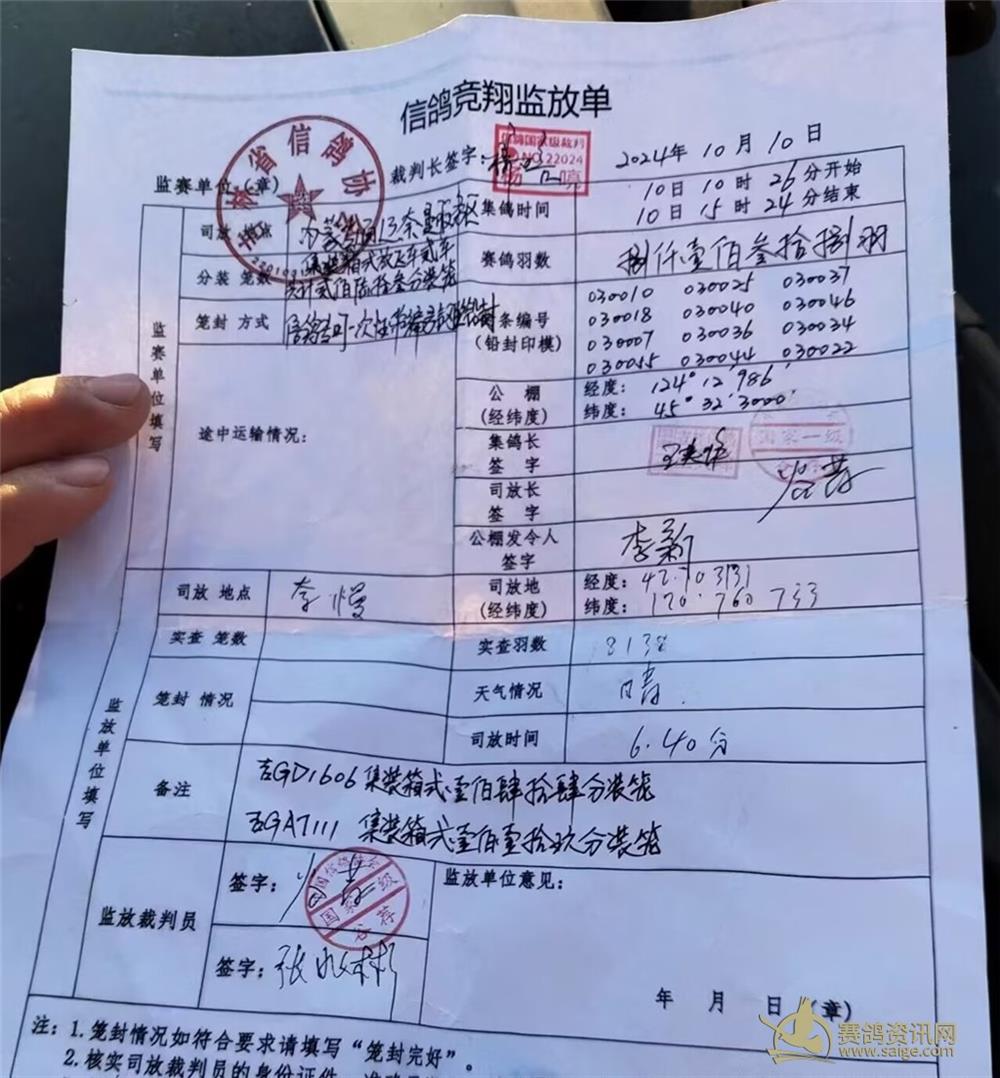 信鸽竞翔监放单
省信鸽协
监赛单位（章）
裁判长签字：
信鸽国家级裁判
NO:22024
2024年10月10日
司放地点
集鸽时间
10日10时26分开始
10日15时24分结束
分装 笼数
集装箱式放飞车贰车
共计贰佰陆拾叁分装笼
赛鸽羽数
捌仟壹佰叁拾捌羽
笼封 方式
条编号
(铅封印模)
030010 030025 030037
030018 030040 030046
030007 030036 030034
030055 030044 030022
监赛单位填写
途中运输情况：
公 棚
(经纬度)
经度：124°12'986'
纬度：45°32'3000'
集鸽长
签 字
国家一级
司放长
签 字
公棚发令人
签字
李新
司放 地点
司放地
(经纬度)
经度：42.703131
纬度：120.760733
实查 笼数
实查羽数
8138
监放单位填写
笼封 情况
天气情况
晴
司放时间
6.40分
备注
吉GD1606 集装箱式壹佰肆拾肆分装笼
吉GA7111 集装箱式壹佰壹拾玖分装笼
监放裁判员
签字：
签字：
监放单位意见：
年 月 日（章）
注：1.笼封情况如符合要求请填写“笼封完好”。
2.核实司放裁判员的身份证件
赛鸽资讯网
www.saige.com